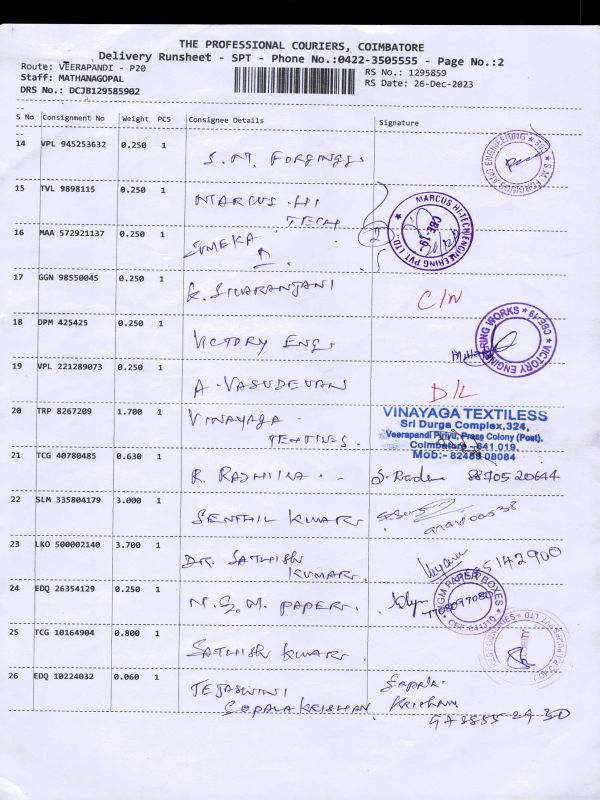 THE PROFESSIONAL COURIERS, COIMBATORE
Delivery Runsheet - SPT - Phone No.:0422-3505555 - Page No.:2
Route: VEERAPANDI - P20
RS No.: 1295859
Staff: MATHANAGOPAL
RS Date: 26-Dec-2023
DRS No.: DCJB129585902
S No Consignment No Weight PCS Consignee Details Signature
14 VPL 945253632 0.250 1 S.M. FORGINGS
15 TVL 9898115 0.250 1 MARCUS HI
TECH
16 MAA 572921137 0.250 1 SUMEKA
17 GGN 98550045 0.250 1 G. SIVARANJANI C/N
18 DPM 425425 0.250 1 VICTORY ENG.
VICTORY ENGINEERING WORKS ★ CBE-19 ★
19 VPL 221289073 0.250 1 A. VASUDEVAN D/L
20 TRP 8267209 1.700 1 VINAYAGA
TEXTILES.
VINAYAGA TEXTILESS
Sri Durga Complex,324,
Veerapandi Pirivu, Press Colony (Post),
Coimbatore - 641 019.
Mob:- 82489 08084
21 TCG 40780485 0.630 1 R. RADHIKA S. Rade 8870520644
22 SLM 335804179 3.000 1 SENTHIL KUMAR
23 LKO 500002140 3.700 1 DR. SATHISH
KUMAR
24 EDQ 26354129 0.250 1 N.G.M. PAPER.
NGM PAPER BOXES
25 TCG 10164904 0.800 1 SATHISH KUMAR
26 EDQ 10224032 0.060 1 TEJASWINI Gopala
GOPALAKRISHAN. Krishan